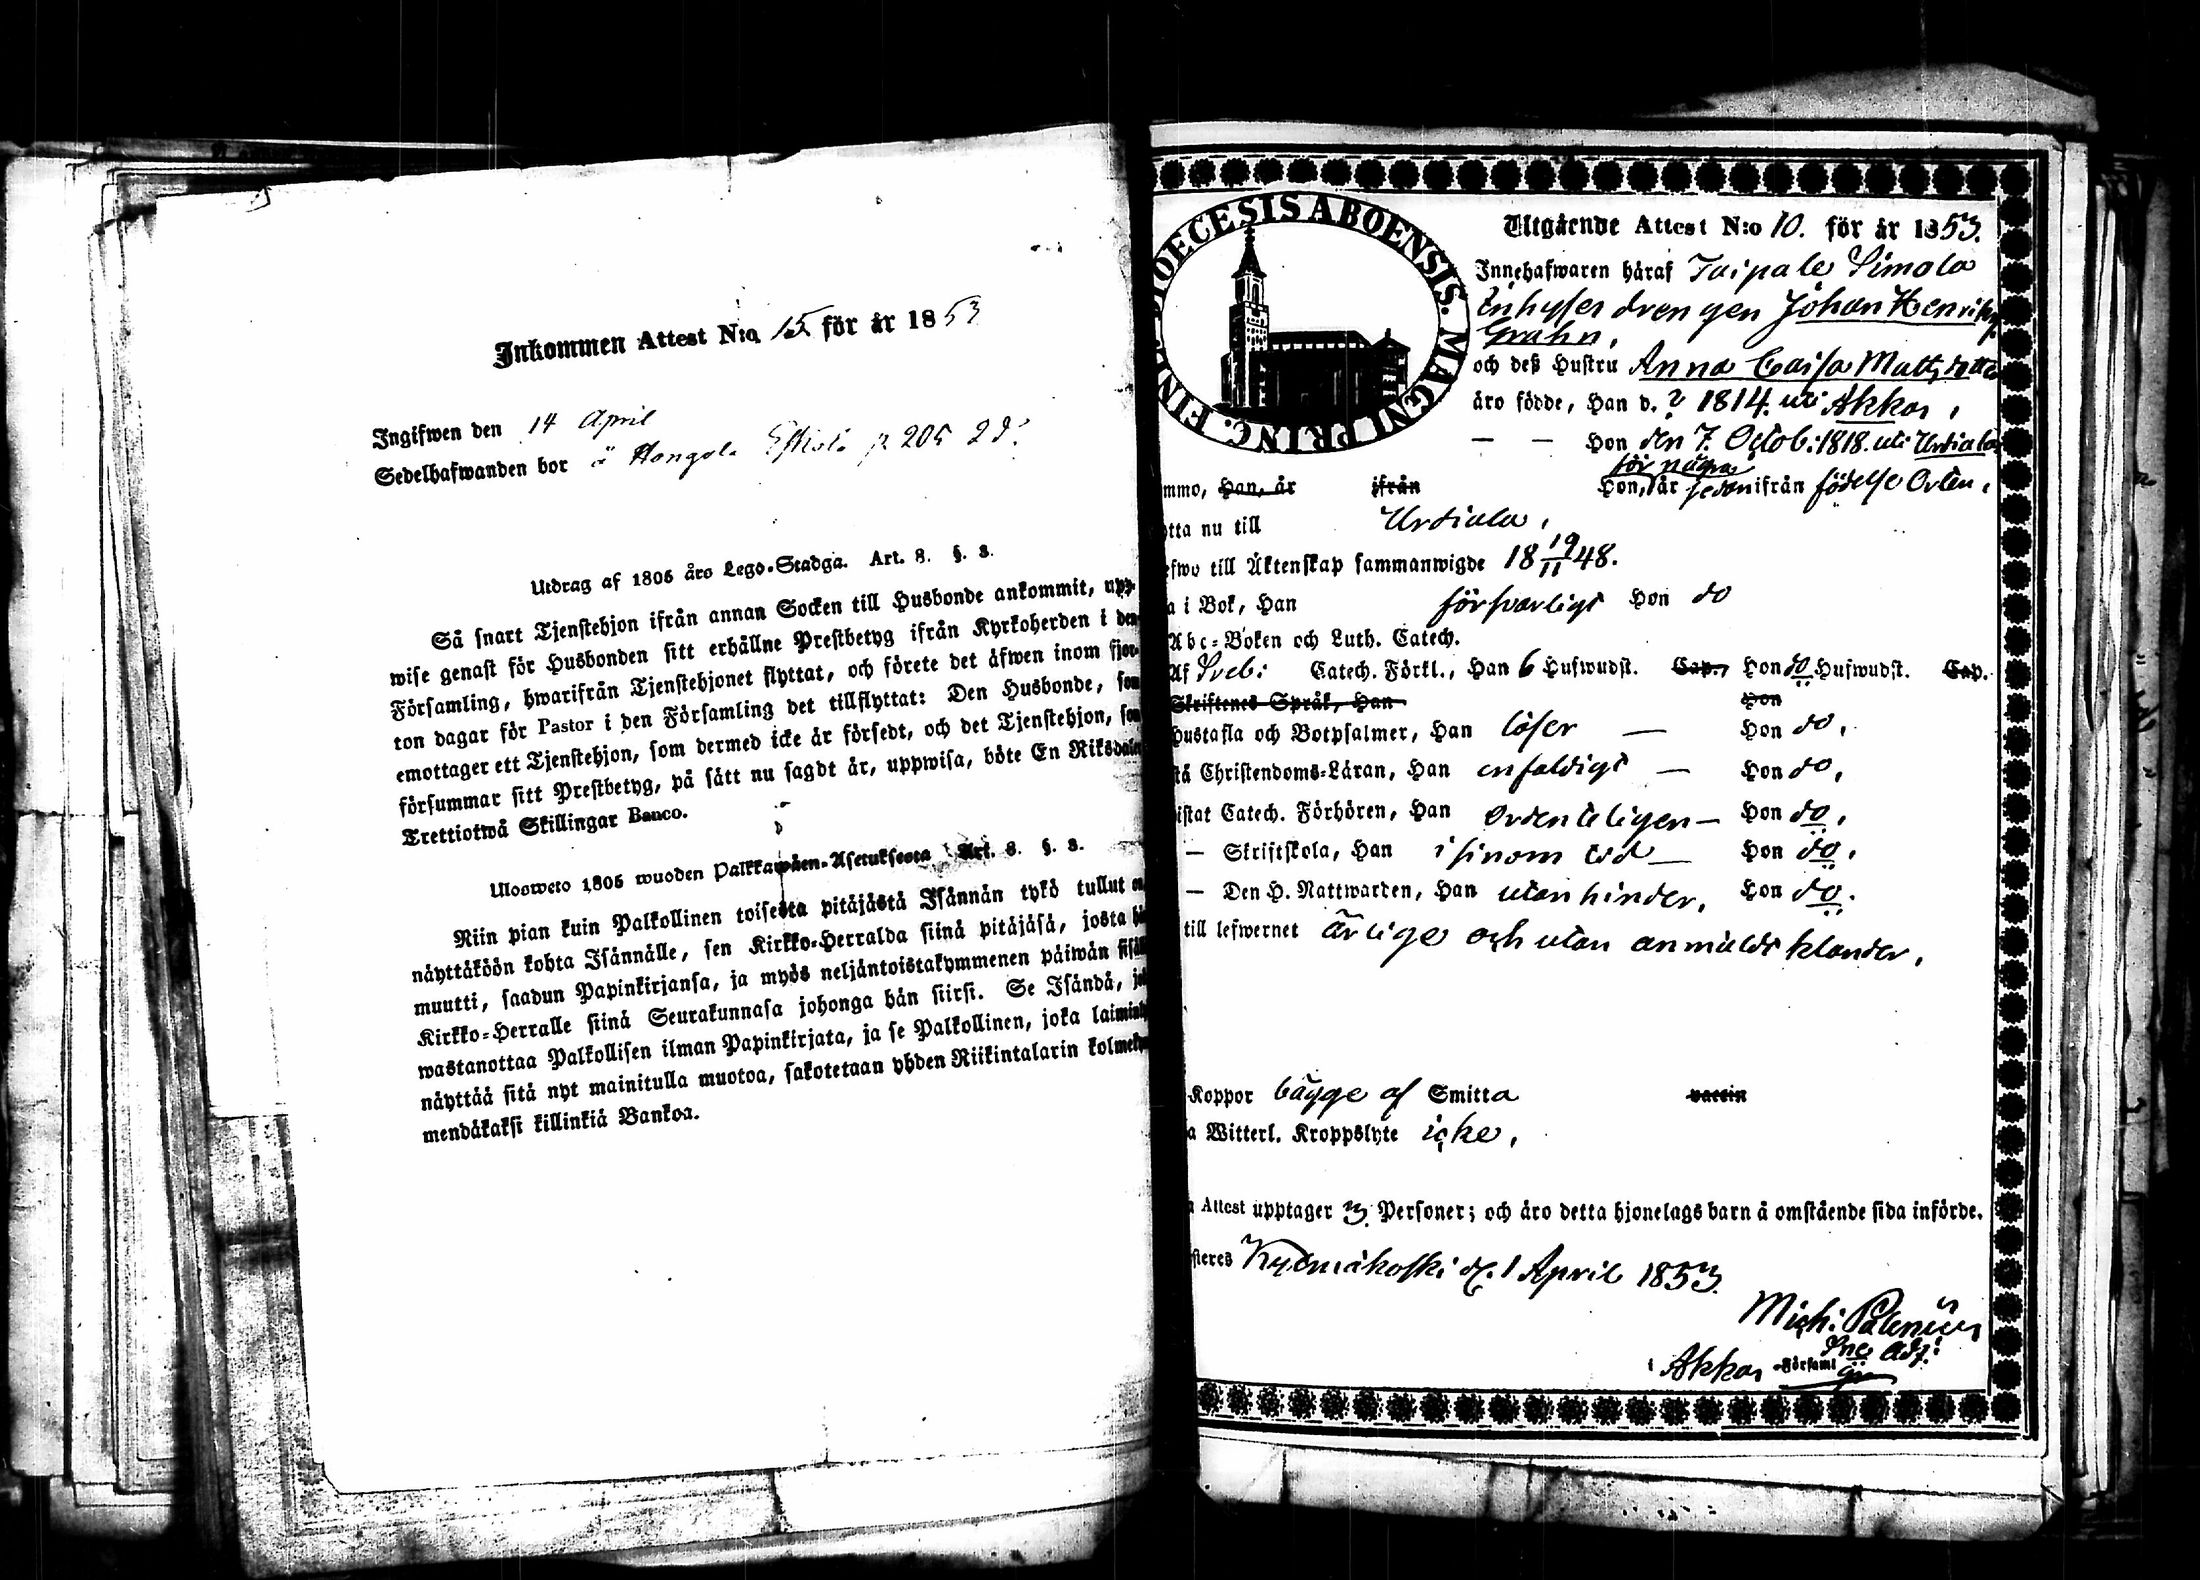 Inkommen Attest N:o 15 för år 1853
Ingifwen den 14 April
Sedelhafwanden bor å Hongola p 205
Utdrag af 1805 års Lego-Stadga. Art. 8. §. 3.
Så snart Tjenstehjon ifrån annan Socken till Husbonde ankommit, upp-
wise genast för Husbonden sitt erhållne Prestbetyg ifrån Kyrkoherden i den
Församling, hwarifrån Tjenstehjonet flyttat, och förete det äfwen inom fjor-
ton dagar för Pastor i den Församling det tillflyttat: Den Husbonde, som
emottager ett Tjenstehjon, som dermed icke är försedt, och det Tjenstehjon, som
försummar sitt Prestbetyg, på sätt nu sagdt är, uppwisa, böte En Riksdaler
Trettiotwå Skillingar Banco.
Ulosweto 1805 wuoden Palkkawäen-Asetuksesta Art. 8. §. 3.
Niin pian kuin Palkollinen toisesta pitäjästä Isännän tykö tullut on,
näyttäköön kohta Isännälle, sen Kirkko-Herralda siinä pitäjäsä, josta hän
muutti, saadun Papinkirjansa, ja myös neljäntoistakymmenen päiwän sisäll
Kirkko-Herralle siinä Seurakunnasa johonga hän siirsi. Se Isändä, jok
wastanottaa Palkollisen ilman Papinkirjata, ja se Palkollinen, joka laiminly
näyttää sitä nyt mainitulla muotoa, sakotetaan yhden Riikintalarin kolmeky
mendäkaksi killinkiä Bankoa.
DIOECESIS ABOENSIS. MAGNI PRINC. FINL.
Utgående Attest N:o 10. för år 1853.
Innehafwaren häraf Taipale Simola
Inhyses drengen Johan Henriks
Grahn,
och deß Hustru Anna Caisa Matts dotter
äro födde, Han d. ? 1814. uti Akkas,
— — Hon den 7. Octob: 1818. uti Urdiala
för några
mmo, Han, är ifrån Hon, är sedan ifrån födelse Orten,
otta nu till Urdiala,
efwo till Äktenskap sammanwigde 18 19/11 48.
a i Bok, Han förswarligt Hon do
Abc-Boken och Luth. Catech.
Af Sveb: Catech. Förkl., Han 6 Hufwudst. Cap., Hon do Hufwudst. Cap.
Skriftenes Språk, Han Hon
Hustafla och Botpsalmer, Han läser — Hon do,
stå Christendoms-Läran, Han enfaldigt — Hon do,
istat Catech. Förhören, Han Ordenteligen — Hon do,
— Skriftskola, Han i sinom tid — Hon do,
— Den H. Nattwarden, Han utan hinder, Hon do.
till lefwernet ärlige och utan anmäldt klander,
Koppor bägge af Smitta vaccin
a Witterl. Kroppslyte icke,
n Attest upptager 3. Personer; och äro detta hjonelags barn å omstående sida införde.
steres Kylmäkoski d. 1 April 1853.
Mich: Palenius
Sac Adj:
i Akkas Församl